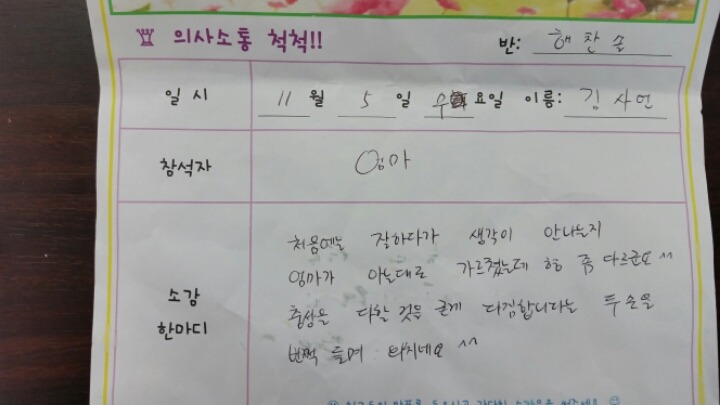 의사소통 척척!! 반: 해찬솔
일시 11월 5일 요일 이름: 김사언
참석자 엄마
소감 한마디
처음에는 잘하다가 생각이 안나는지
엄마가 아는대로 가르쳤는데 좀 다르군요 ^^
다할 것을 굳게 다짐합니다는 두 손을
번쩍 들며 외치네요 ^^